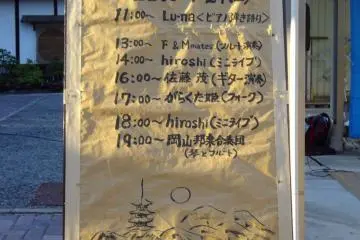 11:00～ Lu-na<ピアノ弾き語り>
13:00～ F & M mates(フルート演奏)
14:00～ hiroshi(ミニライブ)
16:00～ 佐藤 茂(ギター演奏)
17:00～ がらくた姫(フォーク)
18:00～ hiroshi(ミニライブ)
19:00～ 岡山邦楽合奏団
(琴とフルート)